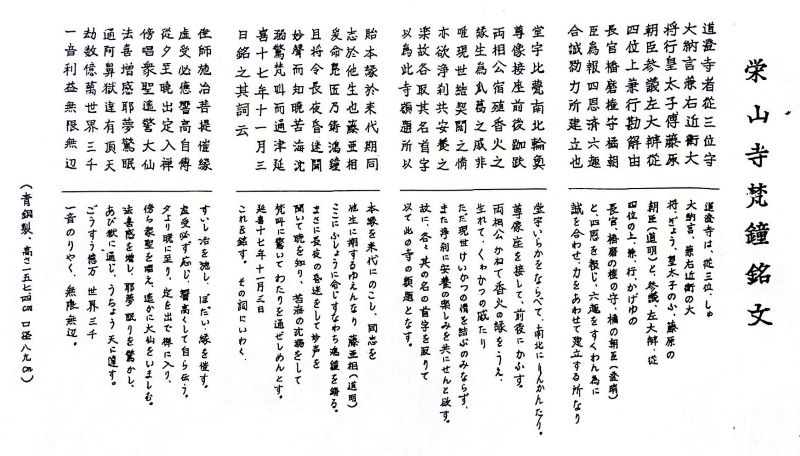 栄山寺梵鐘銘文
道澄寺者從三位守
大納言兼右近衛大
将行皇太子傅藤原
朝臣参議左大辨從
四位上兼行勘解由
長官播磨權守橘朝
臣為報四恩済六趣
合誠勠力所建立也
堂宇比甍南北輪奐
尊像接座前後跏趺
両相公宿殖香火之
縁生為瓜葛之戚非
唯現世結契闊之情
亦欲浄刹共安養之
楽故各取其名首字
以為此寺額題所以
貽本縁於末代期同
志於他生也藤亜相
爰命鳧匠乃鋳鴻鐘
且将令長夜昏迷聞
妙聲而知暁苦海沈
溺驚梵叫而通津延
喜十七年十一月三
日銘之其詞云
師施冶菩提催縁
虚受必應響高自傳
從夕至暁出定入禅
傍唱衆聖遥警大仙
法喜増感耶夢驚眠
通阿鼻獄達有頂天
劫数億萬世界三千
一音利益無限無辺
道澄寺は、従三位、しゅ
大納言、兼右近衛の大
将ぎょう、皇太子のふ、藤原の
朝臣(道明)と、参議、左大辨、従
四位の上、兼、行、かげゆの
長官、播磨の權の守、橘の朝臣(澄清)
と、四恩を報じ、六趣をすくわん為に
誠を合わせ、力をあわせて建立する所なり
堂宇、いらかをならべて、南北にりんかんたり。
尊像、座を接して、前後にかふす。
両相公、かねて香火の縁をうえ、
生れて、くわかつの戚たり
ただ現世けいかつの情を結ぶのみならず、
また浄刹に安養の楽しみを共にせんと欲す。
故に、各々其の名の首字を取りて
以て此の寺の額題となす。
本縁を末代にのこし、同志を
他生に期するゆえんなり 藤亜相(道明)
ここにふしょうに命じすなわち鴻鐘を鋳る。
まさに長夜の昏迷をして妙声を
聞いて暁を知り、苦海の沈溺をして
梵叫に驚いてわたりを通ぜしめんとす。
延喜十七年十一月三日
これを銘す。その詞にいわく、
すいし冶を施し、ぼだい、縁を催す。
虚受必ず応じ、響高くして自ら伝う。
夕より暁に至り、定を出で禅に入り、
傍ら衆聖を唱え、遥かに大仙をいましむ。
法喜感を増し、耶夢眠りを驚かし、
あび獄に通じ、うちょう天に達す。
ごうすう億万 世界三千
一音のりやく、無限無辺。
(青銅製、高さ一五七・四㎝ 口径八九㎝)